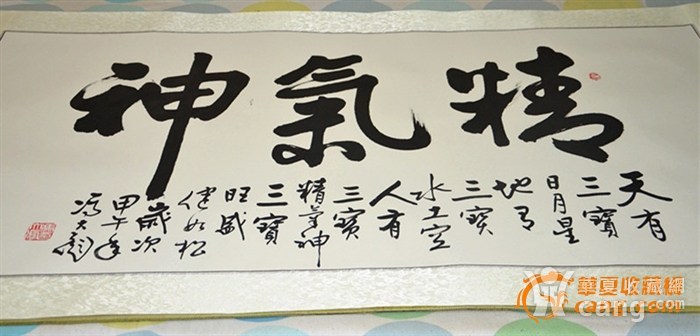 精氣神
天有
三寶
日月星
地有
三寶
水土
人有
三寶
精氣神
三寶
旺盛
健如松
歲次
甲午年
冯大彪
華夏收藏網
cang